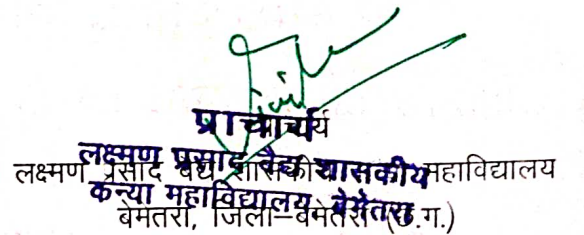 प्राचार्य
लक्ष्मण प्रसाद वैद्य शासकीय
कन्या महाविद्यालय बेमेतरा
प्राचार्य
लक्ष्मण प्रसाद वैद्य शासकीय महाविद्यालय
बेमेतरा, जिला–बेमेतरा (छ.ग.)